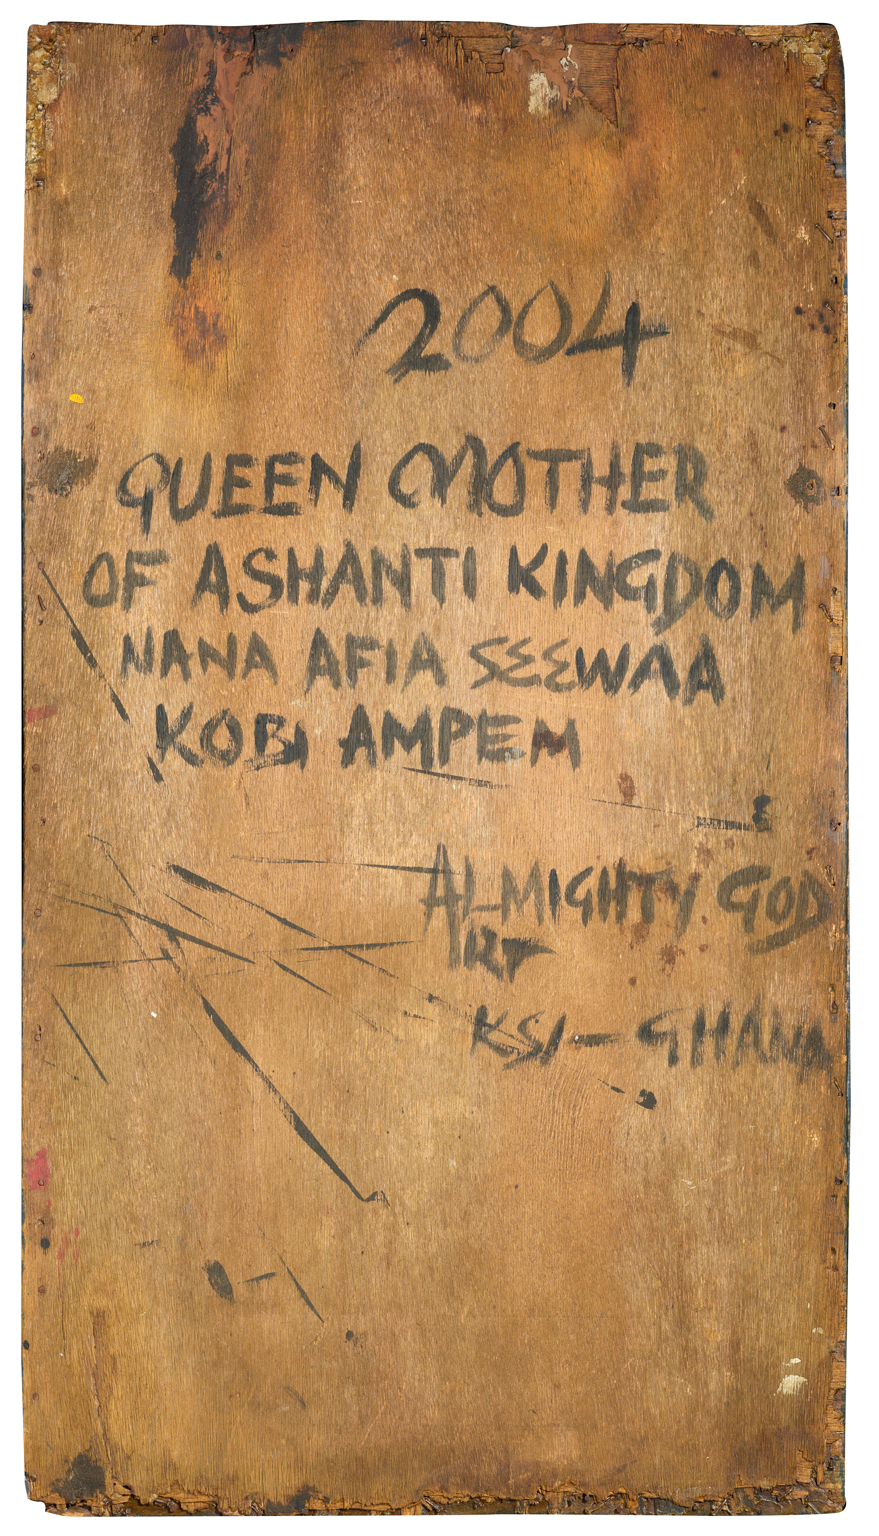 2004
QUEEN MOTHER
OF ASHANTI KINGDOM
NANA AFIA SEEWAA
KOBI AMPEM
ALMIGHTY GOD
ART
KSI - GHANA